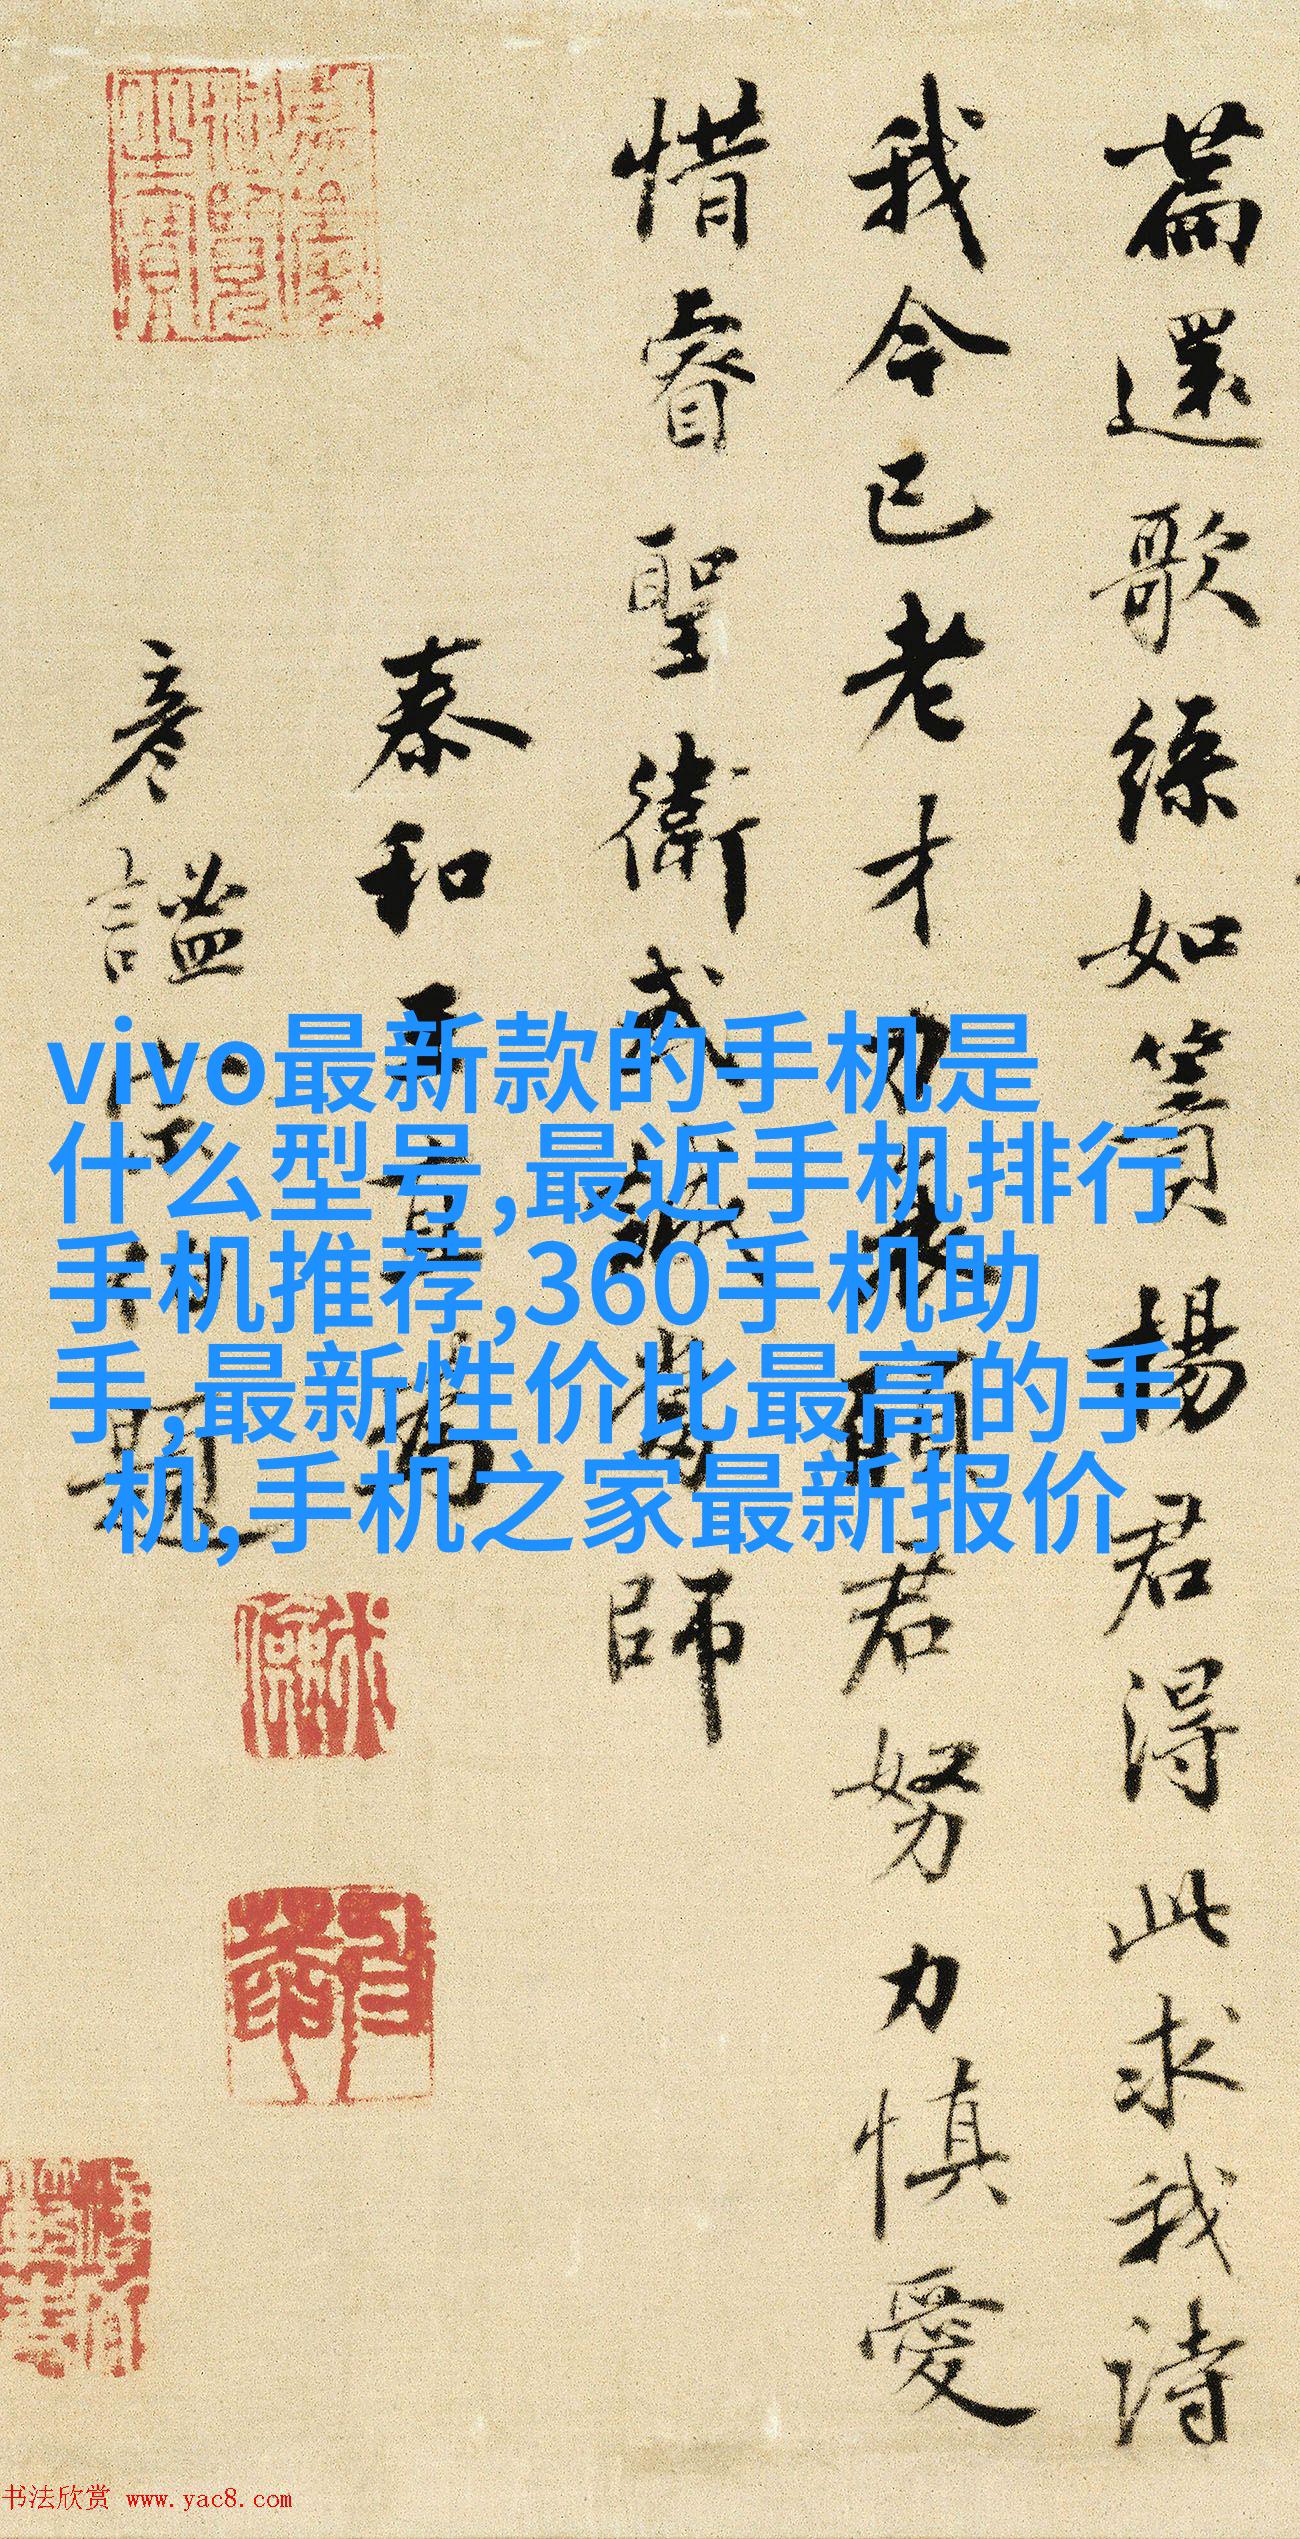 篇還歌綠如簣揚君得此求我詩
我今已老才力衰願君努力慎愛
惜睿聖衛武誠當師
泰和王直為
彥謐
題
vivo最新款的手机是
什么型号,最近手机排行
手机推荐,360手机助
手,最新性价比最高的手
机,手机之家最新报价
书法欣赏 www.yac8.com